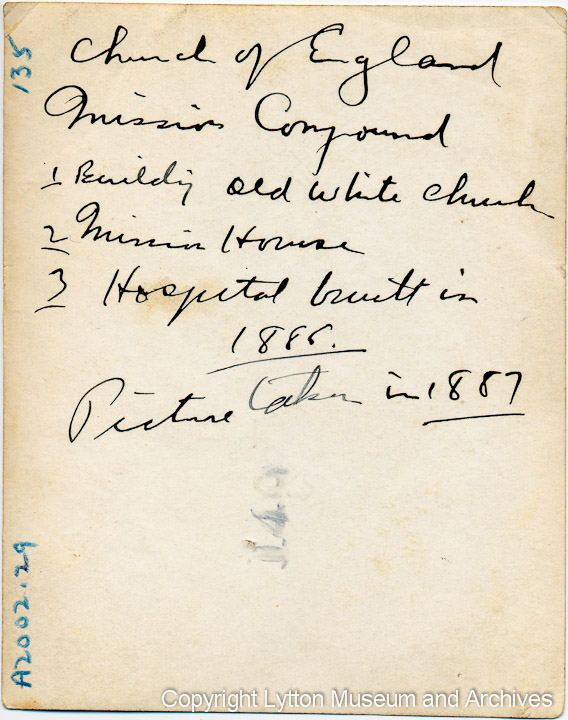 135
Church of England
Mission Compound
1 Building old white church
2 Mission House
3 Hospital built in
1886.
Picture taken in 1887
A2002.29
Copyright Lytton Museum and Archives